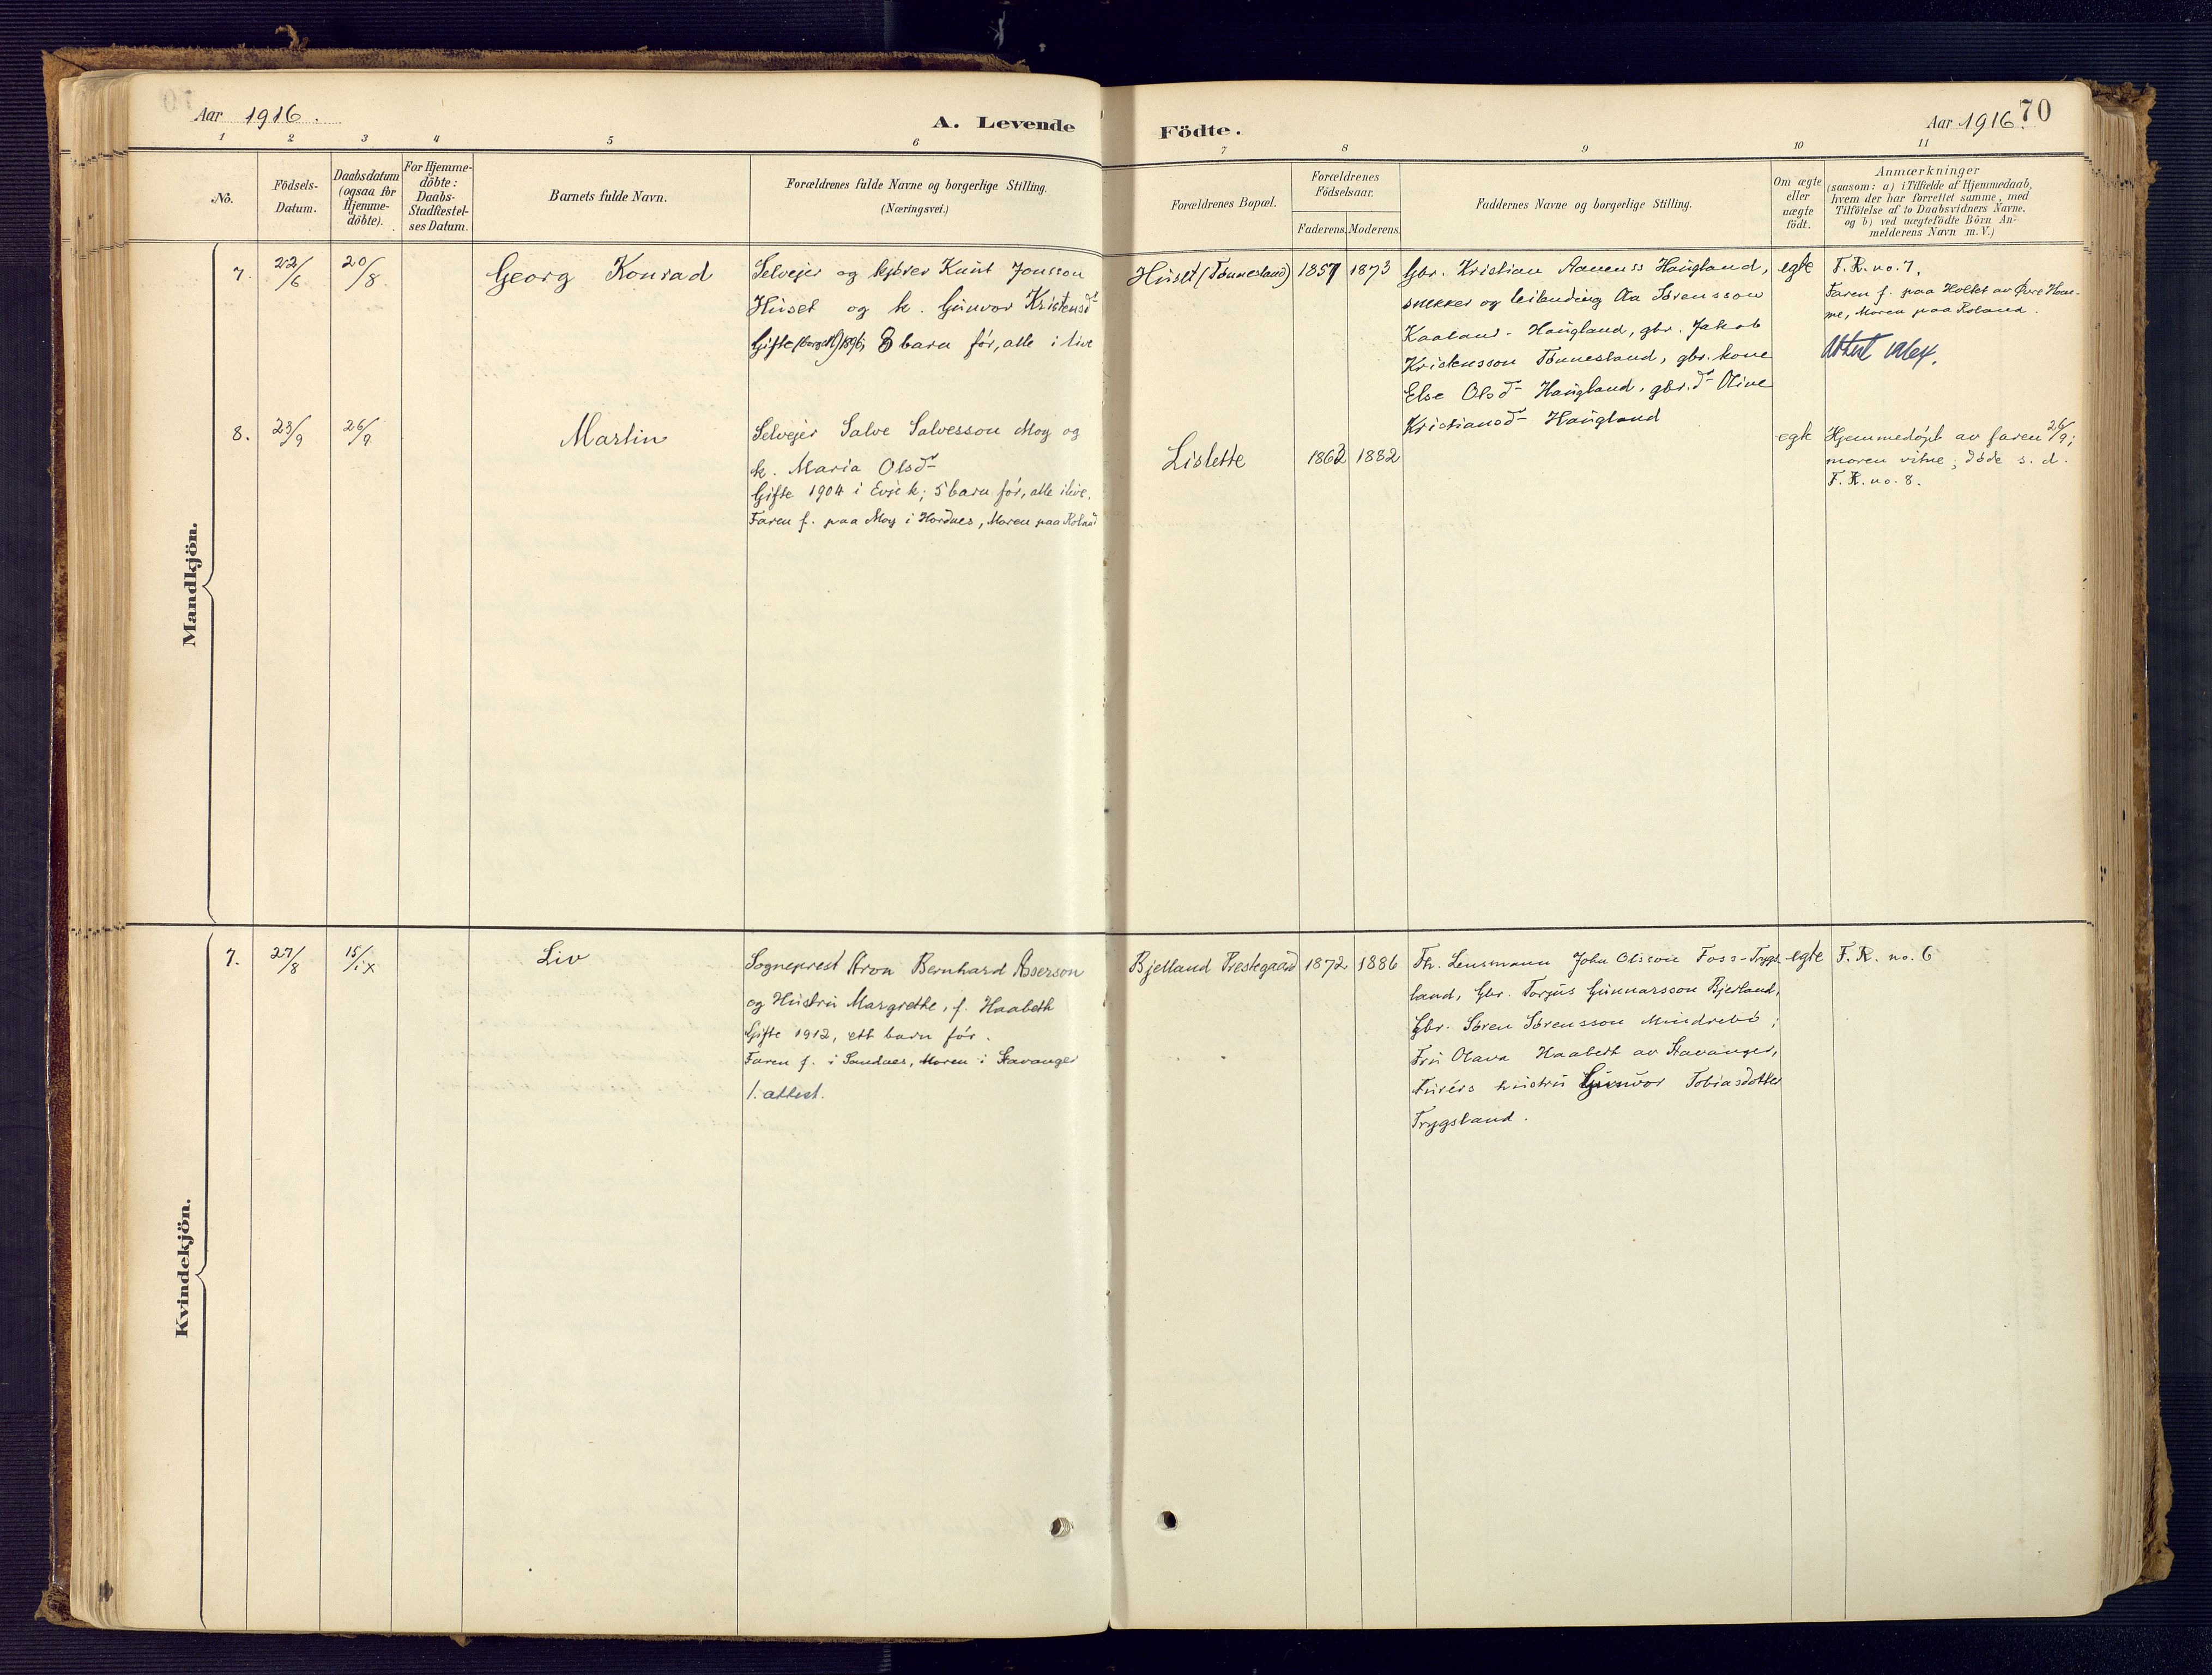 Aar 1916.
A. Levende
Födte.
Aar 1916.
70
1 2 3 4 5 6 7 8 9 10 11
No.
Födsels-
Datum.
Daabsdatum
(ogsaa for
Hjemme-
döbte).
For Hjemme-
döbte:
Daabs-
Stadfæstel-
ses Datum.
Barnets fulde Navn.
Forældrenes fulde Navne og borgerlige Stilling.
(Næringsvei.)
Forældrenes Bopæl.
Forældrenes
Födselsaar.
Faderens. Moderens.
Faddernes Navne og borgerlige Stilling.
Om ægte
eller
uægte
födt.
Anmærkninger
(saasom: a) i Tilfælde af Hjemmedaab,
hvem der har forrettet samme, med
Tilföielse af to Daabsvidners Navne,
og b) ved uægtefödte Börn An-
melderens Navn m. V.)
Mandkjön.
7.
22/6
20/8
Georg Konrad
Selvejer og kjører Knut Jonsson
Huset og k. Gunvor Kristensd
Gifte 1896, 8 barn før, alle i live
Huset (Tønnesland)
1857
1873
Gbr. Kristian Aanenss Haugland,
snekker og leilending Aa Sørensson
Kaaland - Haugland, gbr. Jakob
Kristensson Tønnesland, gbr. kone
Else Olsd Haugland, gbr. d Oline
Kristiansd Haugland
egte
F.R. no. 7.
Faren f. paa Holtet av Øvre Hom-
me, Moren paa Roland.
Attest
8.
23/9
26/9
Martin
Selvejer Salve Salvesson Moy og
k. Maria Olsd
Gifte 1904 i Evje k; 5 barn før, alle ilive.
Faren f. paa Moy i Hordnes, Moren paa Roland
Lislette
1862
1882
egte
Hjemmedøpt av faren 26/9;
moren vitne; døde s. d.
F. R. no. 8.
Kvindekjön.
7.
27/8
15/ix
Liv
Sogneprest Aron Bernhard Aserson
og Hustru Margrethe, f. Haabeth
Gifte 1912, ett barn før.
Faren f. i Sandnes, Moren i Stavanger
1. attest.
Bjelland Prestegaard
1872
1886
Fh. Lensmann John Olsson Foss-Trygs-
land, Gbr. Torjus Gunnarsson Bjerland,
Gbr. Søren Sørensson Mindrebø;
Fru Olava Haabeth av Stavanger,
Furérs hustru Gunvor Tobiasdotter
Trygsland.
egte
F. R. no. 6